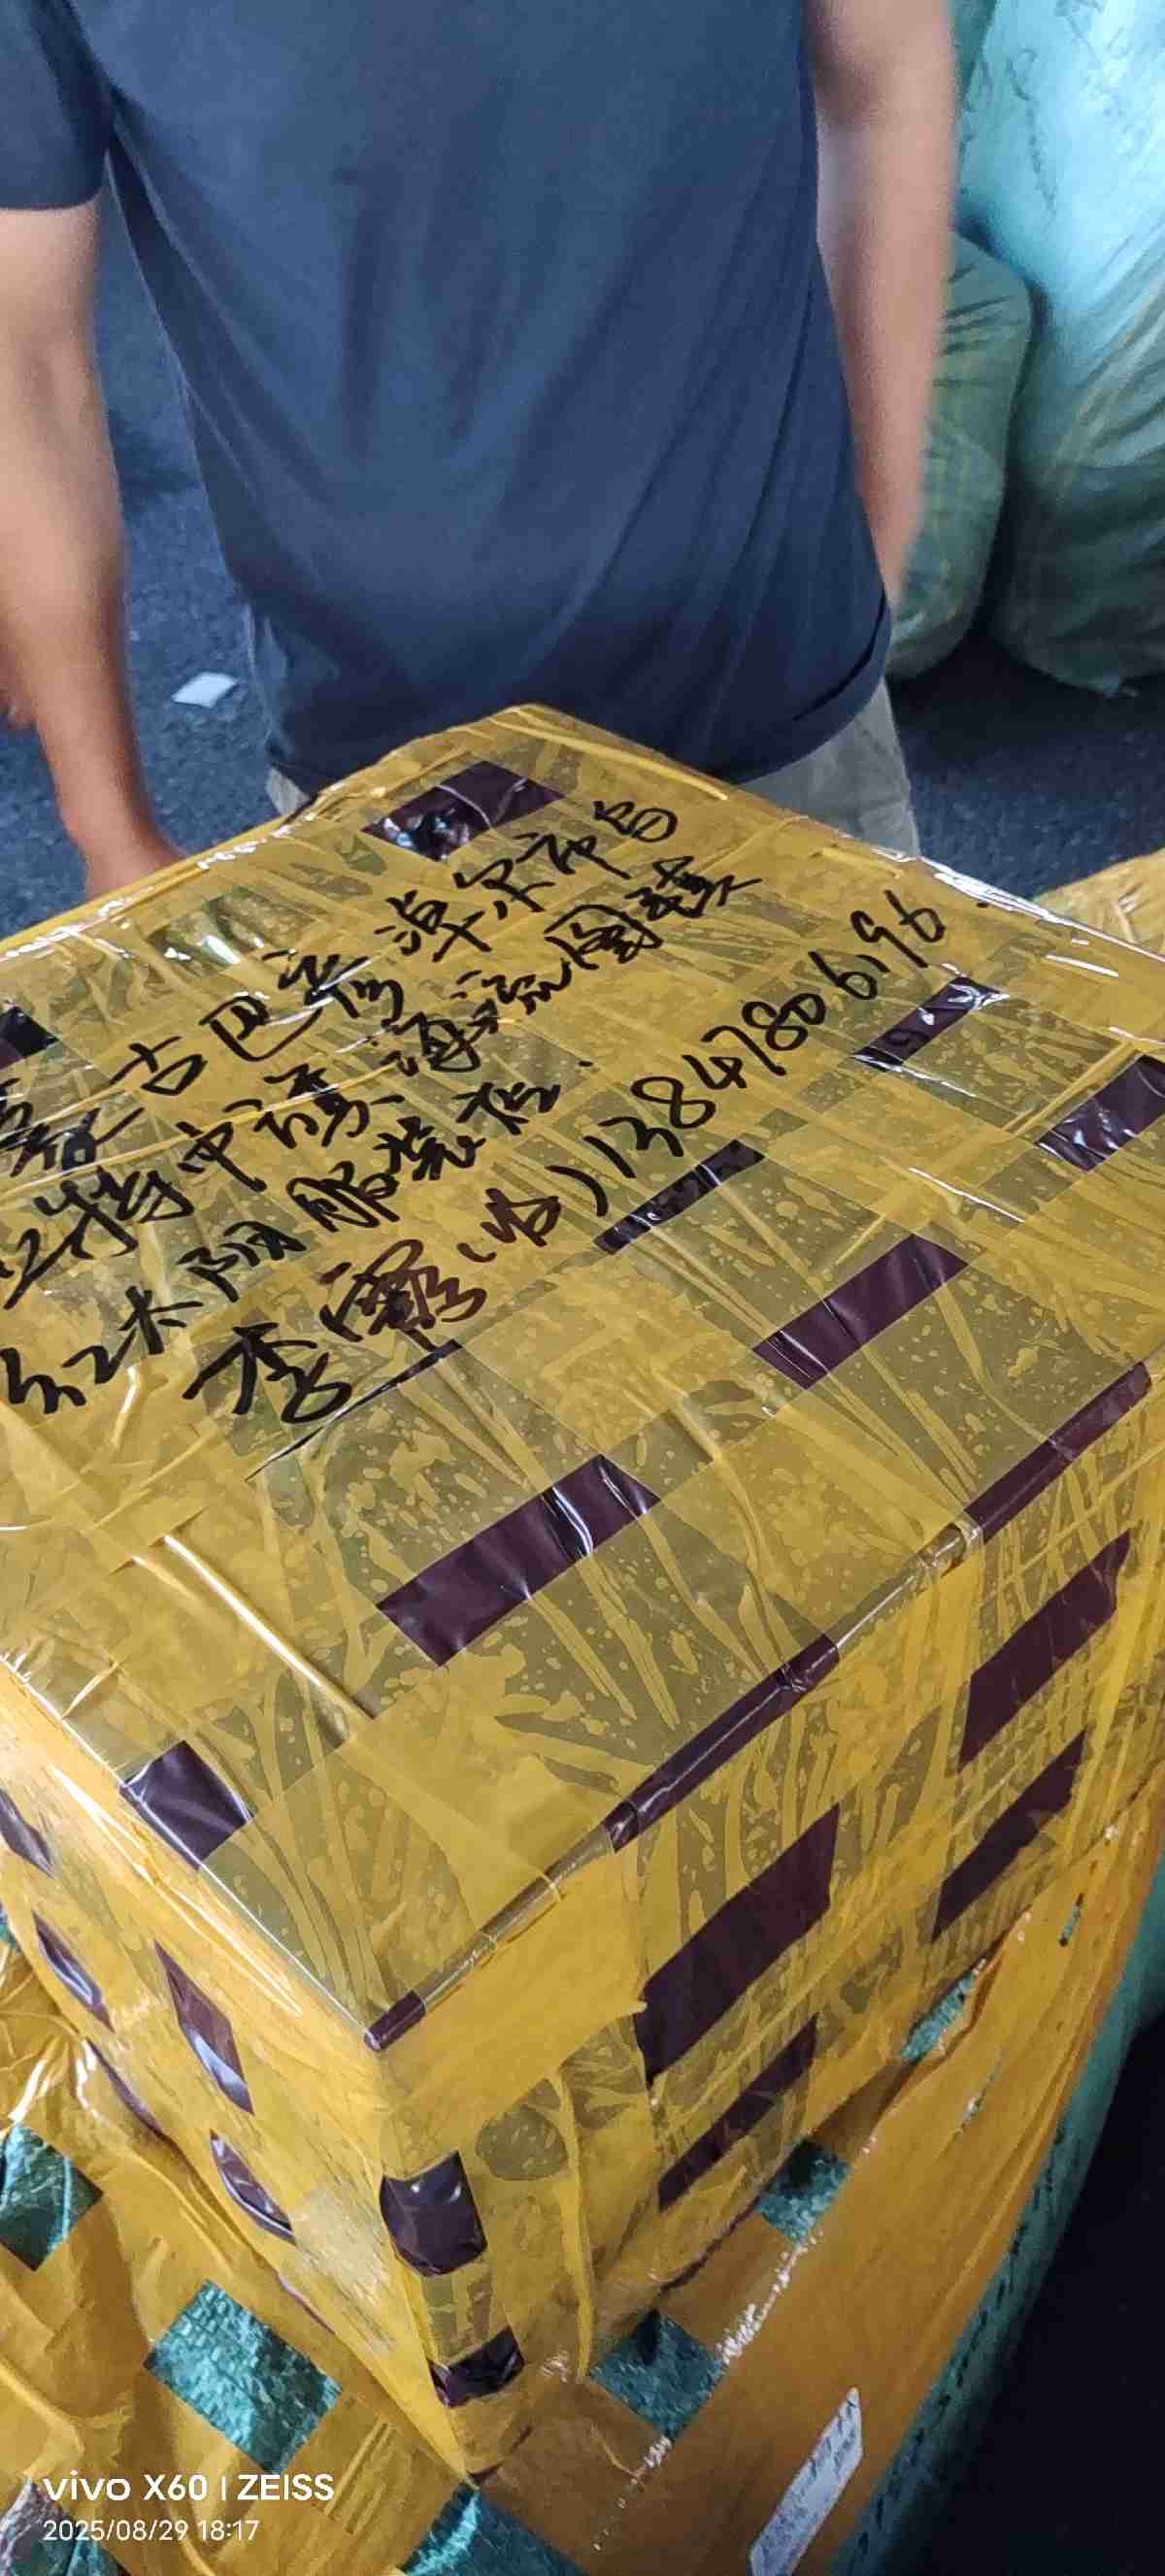 蒙古巴彦淖尔市乌
拉特中旗海流图镇
木 服装柜.
李霞(收)13847806196
vivo X60 | ZEISS
2025/08/29 18:17